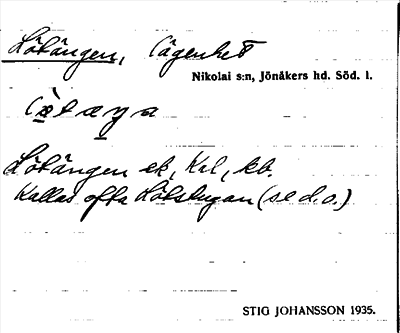 Lötängen, lägenhet
Nikolai s:n, Jönåkers hd. Söd. l.
Lötängen ek, Krl, kb.
Kallas ofta Lötstugan (se d. o.)
STIG JOHANSSON 1935.